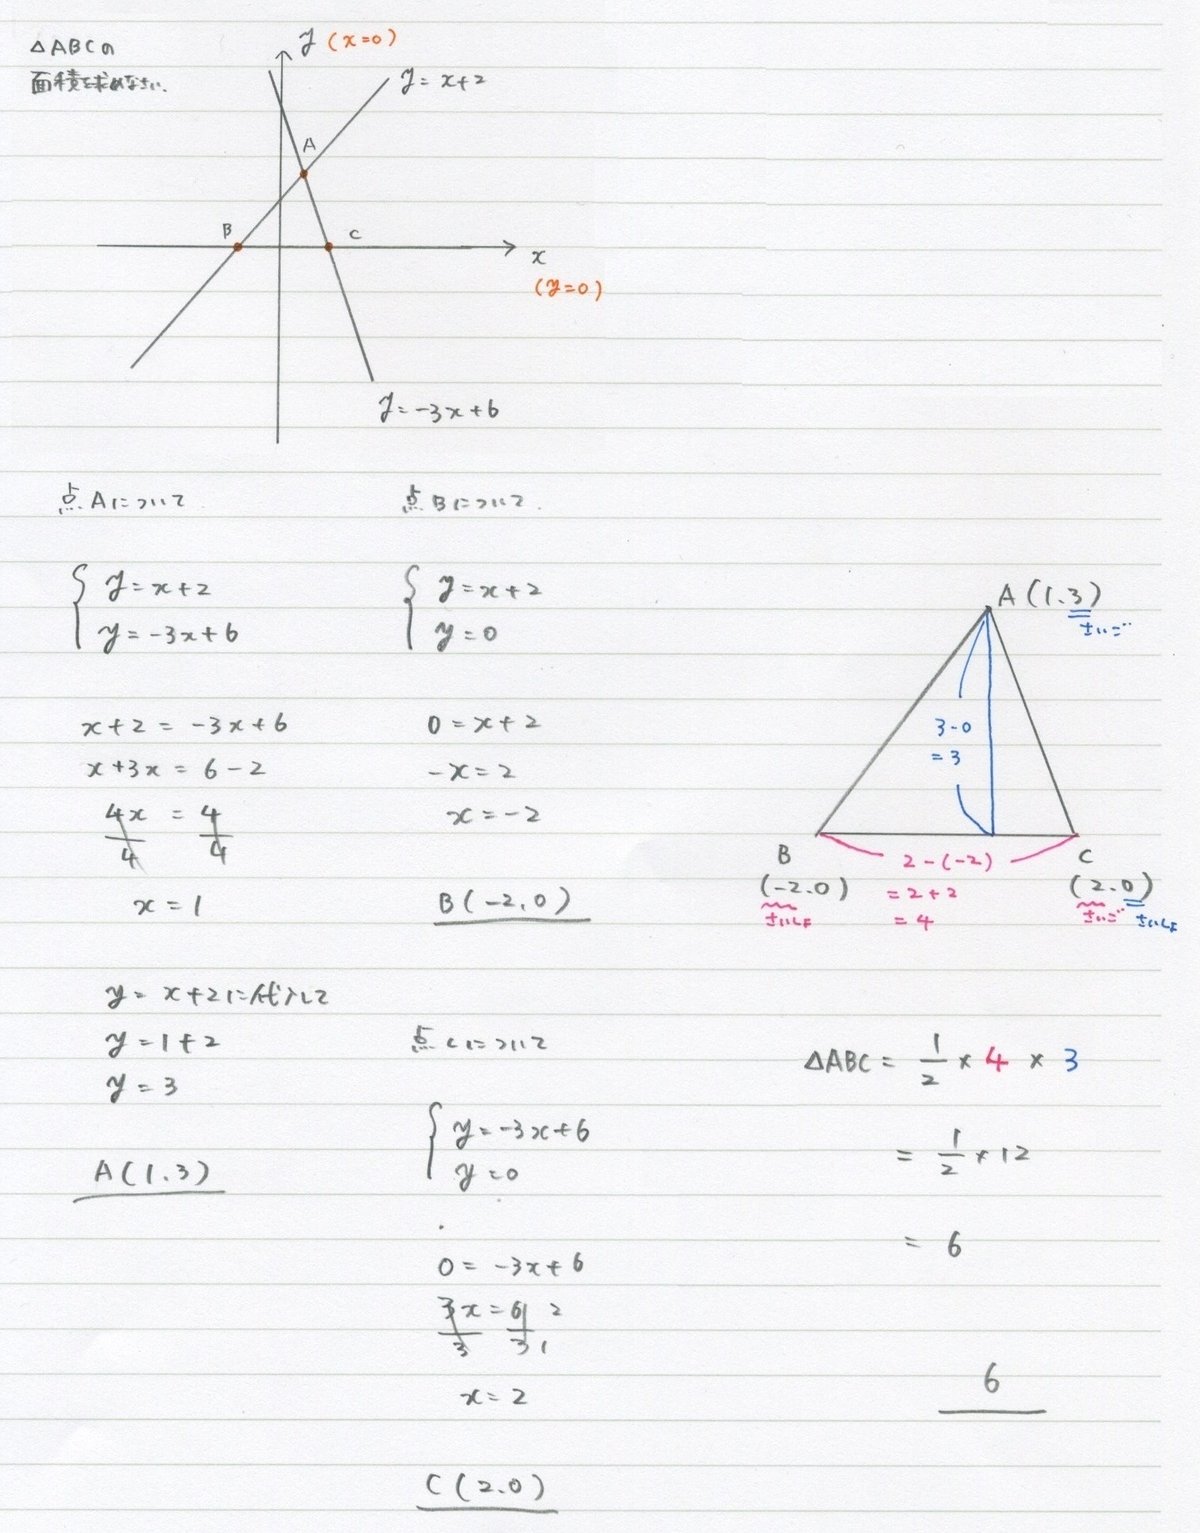 △ABCの
面積を求めなさい.
y (x=0)
y=x+2
A
B
C
x
(y=0)
y=-3x+6
点Aについて
{ y=x+2
y=-3x+6
x+2=-3x+6
x+3x=6-2
4x/4 = 4/4
x=1
y=x+2に代入して
y=1+2
y=3
A(1.3)
点Bについて.
{ y=x+2
y=0
0=x+2
-x=2
x=-2
B(-2,0)
点Cについて
{ y=-3x+6
y=0
0=-3x+6
3x/3 = 6/3 2
1
x=2
C(2.0)
A(1.3)
さいご
3-0
=3
B
C
(-2.0)
(2.0)
さいしょ
さいご
さいしょ
2-(-2)
=2+2
=4
△ABC = 1/2 × 4 × 3
= 1/2 × 12
= 6
6